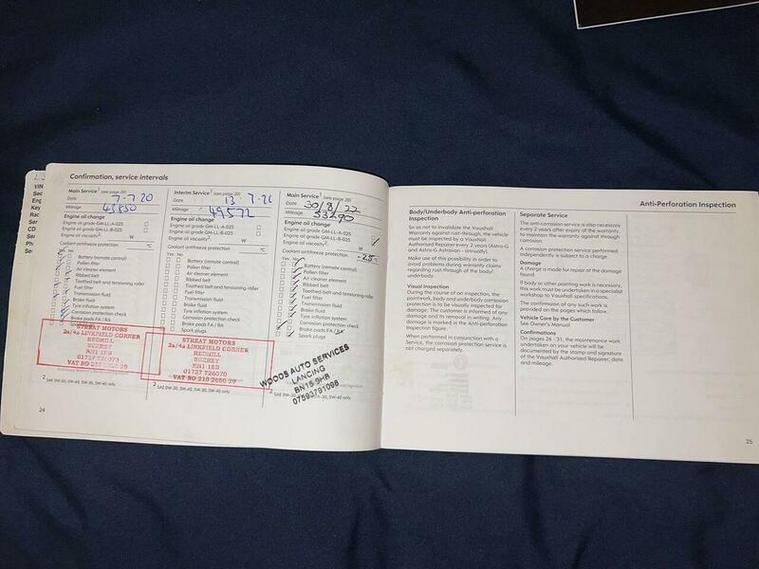 Confirmation, service intervals
Main Service¹ (see page 20)
Date 7-7-20
Mileage 45850
Engine oil change
Engine oil grade GM-LL-A-025
Engine oil grade GM-LL-B-025
Engine oil viscosity² W
Coolant antifreeze protection °C
Yes No
Battery (remote control)
Pollen filter
Air cleaner element
Ribbed belt
Toothed belt and tensioning roller
Fuel filter
Transmission fluid
Brake fluid
Tyre inflation system
Corrosion protection check
STREAT MOTORS
2a/4a LINKFIELD CORNER
REDHILL
SURREY
RH1 1BD
01737
VAT NO
24
Interim Service¹ (see page 20)
Date 13 7-21
Mileage 49572
Engine oil change
Engine oil grade GM-LL-A-025
Engine oil grade GM-LL-B-025
Engine oil viscosity² W
Coolant antifreeze protection °C
Yes No
Battery (remote control)
Pollen filter
Air cleaner element
Ribbed belt
Toothed belt and tensioning roller
Fuel filter
Transmission fluid
Brake fluid
Tyre inflation system
Corrosion protection check
Brake pads FA / RA
Spark plugs
STREAT MOTORS
2a/4a LINKFIELD CORNER
REDHILL
SURREY
RH1 1BD
01737 726070
VAT NO 210 2650 29
Main Service¹ (see page 20)
Date 30/8/22
Mileage 53290
Engine oil change
Engine oil grade GM-LL-A-025
Engine oil grade GM-LL-B-025
Engine oil viscosity²
Coolant antifreeze protection -25
Yes No
Battery (remote control)
Pollen filter
Air cleaner element
Ribbed belt
Toothed belt and tensioning roller
Fuel filter
Transmission fluid
Brake fluid
Tyre inflation system
Corrosion protection check
Brake pads FA / RA
Spark plugs
WOODS AUTO SERVICES
LANCING
BN15 9HB
07593791098
Anti-Perforation Inspection
Body/Underbody Anti-perforation
Inspection
So as not to invalidate the Vauxhall
Warranty against rust-through, the vehicle
must be inspected by a Vauxhall
Authorised Repairer every 2 years (Astra-G
and Astra-G Astravan - annually).
Make use of this possibility in order to
avoid problems during warranty claims
regarding rust through of the body/
underbody.
Visual Inspection
During the course of an inspection, the
paintwork, body and underbody corrosion
protection is to be visually inspected for
damage. The customer is informed of any
damage and its removal in writing. Any
damage is marked in the Anti-perforation
Inspection figure.
When performed in conjunction with a
Service, the corrosion protection service is
not charged separately.
Separate Service
The anti-corrosion service is also necessary
every 2 years after expiry of the warranty,
to maintain the warranty against through
corrosion.
A corrosion protection service performed
independently is subject to a charge.
Damage
A charge is made for repair of the damage
found.
If body or other painting work is necessary,
this work must be undertaken in a specialist
workshop to Vauxhall specifications.
The confirmation of any such work is
provided on the pages which follow.
Vehicle Care by the Customer
See Owner's Manual
Confirmations
On pages 26 - 31, the maintenance work
undertaken on your vehicle will be
documented by the stamp and signature
of the Vauxhall Authorised Repairer, date
and mileage.
25